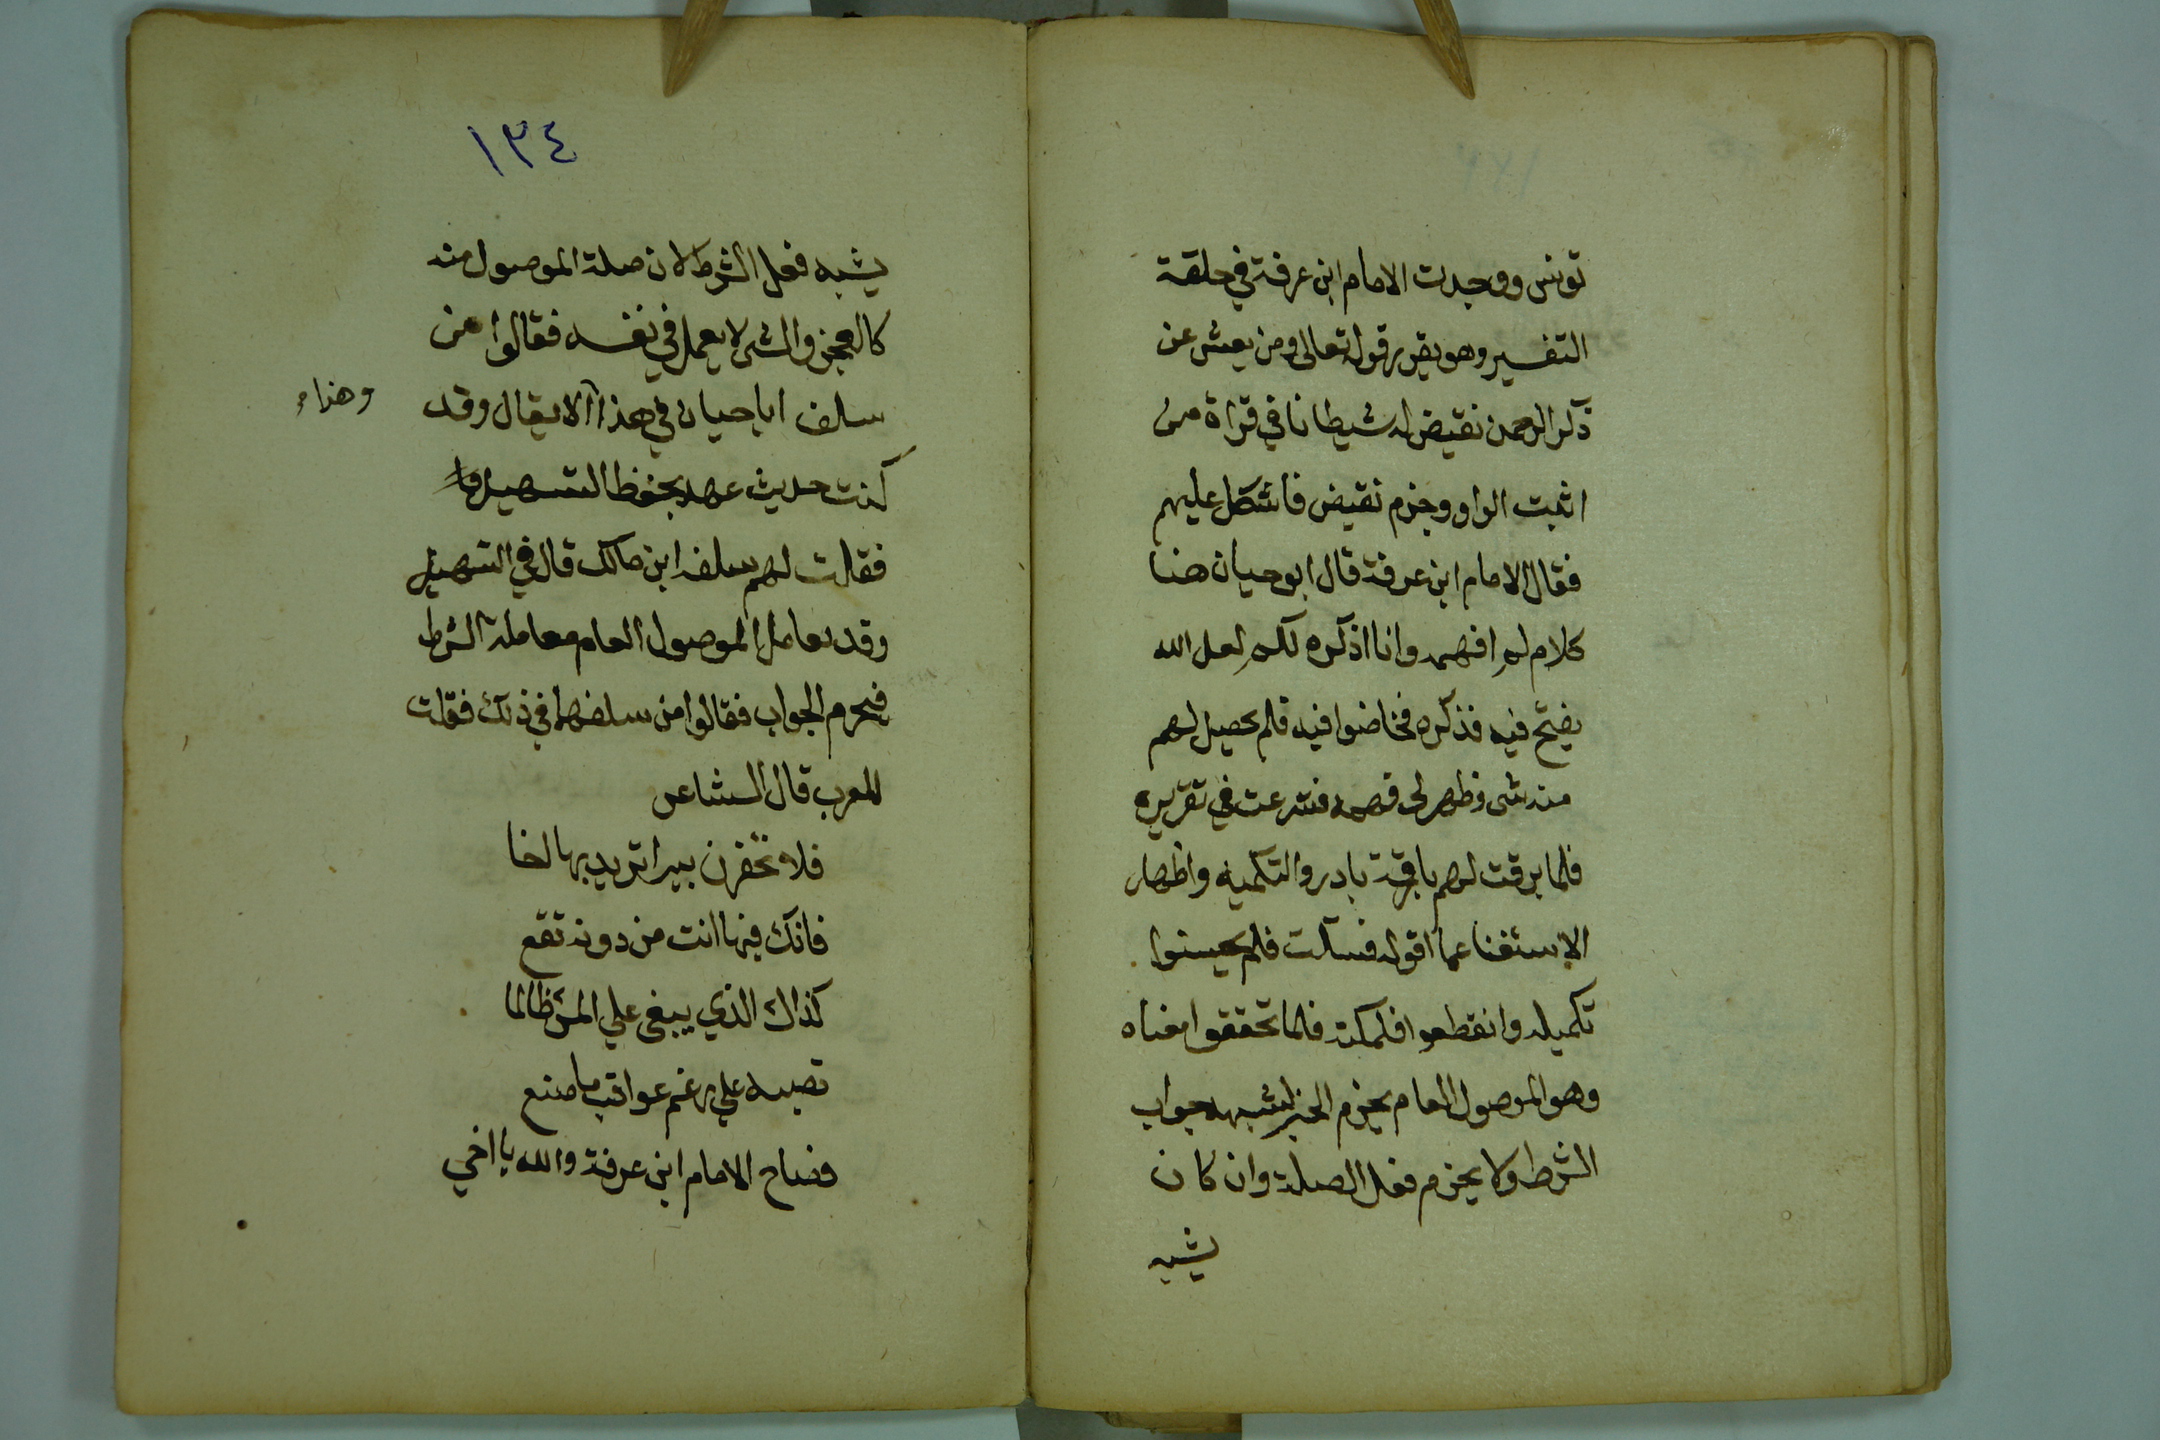 تونس ووجدت الامام ابن عرفة في حلقة
التفسير وهو يقرر قوله تعالى ومن يعش عن
ذكر الرحمن نقيض له شيطانا في قراة من
اثبت الواو وجزم نقيض فاشكل عليهم
فقال الامام ابن عرفة قال ابو حيان هنا
كلام لم افهمه وانا اذكره لكم لعل الله
يفتح فيه فذكره فخاضوا فيه فلم يحصل لهم
منه شى وظهر لى فهمه فشرعت في تقريره
فلما برقت لهم بارقة بادروا لتكميله واظهار
الاستغنا عما اقوله فسكت فلم يحسنوا
تكميله وانقطعوا فكملته فلما تحققوا معناه
وهو الموصول العام يجزم الخبر لشبهه جواب
الشرط ولا يجزم فعل الصلة وان كان
يشبه
١٣٤
يشبه فعل الشرط لان صلة الموصول منه
كالعجز والشى لا يعمل في نفسه فقالوا من
سلف ابا حيان في هذا الا يقال وقد
وهذا
كنت حديث عهد بحفظ التسهيل
فقلت لهم سلفه ابن مالك قال في التسهيل
وقد يعامل الموصول العام معاملة الشرط
فيجزم الجواب فقالوا من سلفهما في ذلك فقلت
للعرب قال الشاعر
فلا تحفرن بيرا تريد بها اخا
فانك فيها انت من دونه تقع
كذاك الذي يبغى علي المرء ظالما
تصبه علي رغم عواقب ما صنع
فصاح الامام ابن عرفة والله يا اخي